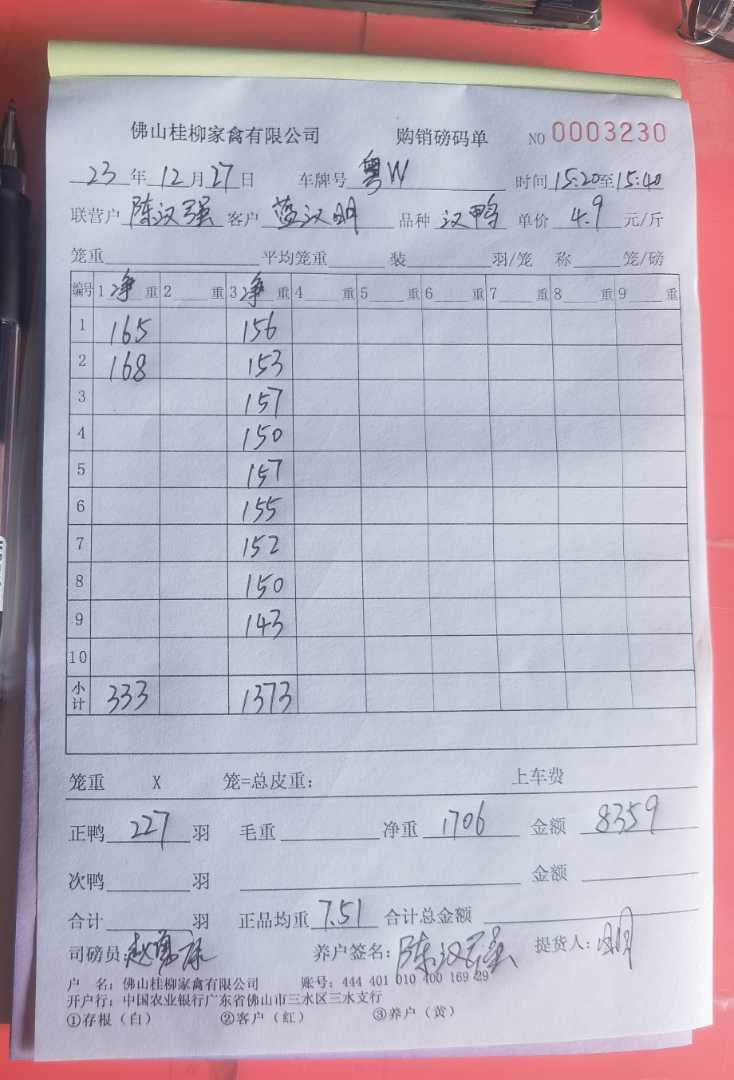 佛山桂柳家禽有限公司 购销磅码单 NO 0003230
23年12月27日 车牌号 粤W 时间 15:20至15:40
联营户 陈汉强 客户 蓝汉明 品种 汉鸭 单价 4.9 元/斤
笼重 平均笼重 装 羽/笼 称 笼/磅
编号 1 净 重 2 重 3 净 重 4 重 5 重 6 重 7 重 8 重 9 重
1 165 156
2 168 153
3 157
4 150
5 157
6 155
7 152
8 150
9 143
10
小计 333 1373
笼重 X 笼=总皮重: 上车费
正鸭 227 羽 毛重 净重 1706 金额 8359
次鸭 羽 金额
合计 羽 正品均重 7.51 合计总金额
司磅员: 养户签名: 陈汉强 提货人: 明
户 名: 佛山桂柳家禽有限公司 账号: 444 401 010 400 169 29
开户行: 中国农业银行广东省佛山市三水区三水支行
①存根(白) ②客户(红) ③养户(黄)